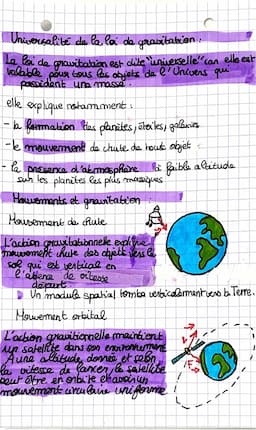 Universalité de la loi de gravitation :
La loi de gravitation est dite "universelle" car elle est
valable pour tous les objets de l'Univers qui
possèdent une masse.
elle explique notamment :
- la formation des planètes, étoiles, galaxies
- le mouvement de chute de tout objet
- la présence d'atmosphère à faible altitude
sur les planètes les plus massiques
Mouvements et gravitation
Mouvement de chute
L'action gravitationnelle explique
mouvement chute des objets vers le
sol qui est vertical en
l'absence de vitesse
départ
Un module spatial tombe verticalement vers la Terre.
Mouvement orbital
L'action gravitionnelle maintient
un satellite dans son environnement
A une altitude donnée et selon
la vitesse de lancer, le satellite
peut être en orbite et avoir un
mouvement circulaire uniforme